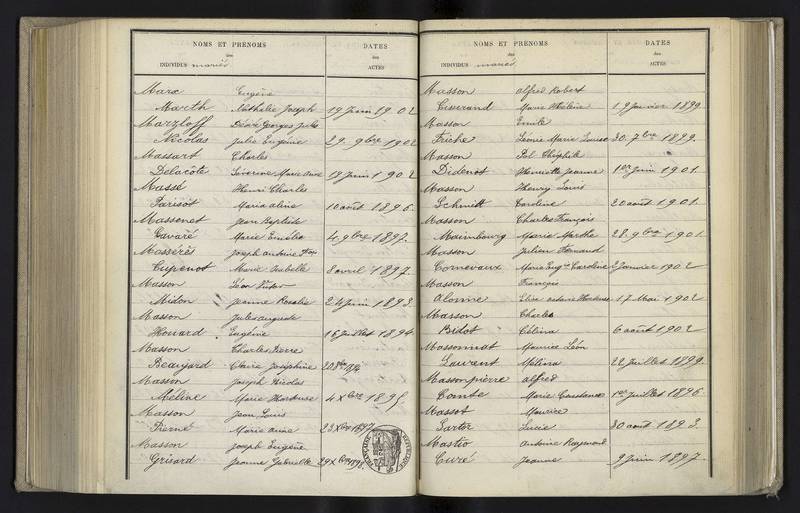 NOMS ET PRÉNOMS
des
INDIVIDUS mariés
DATES
des
ACTES
Marx Eugène
Marth Nathalie Joseph 19 Juin 1902
Marzloff Désiré Georges Jules
Nicolas Julie Eugénie 29. 9bre 1902
Massart Charles
Delacôte Séverine Marie Anne 19 Juin 1902
Massé Henri Charles
Parisot Maria Aline 10 août 1896.
Massenet Jean Baptiste
Gavaré Marie Emélie 4. 9bre 1897.
Massérès Joseph Antoine
Cupenot Marie Isabelle 8 avril 1897.
Masson Léon Victor
Milon Jeanne Rosalie 24 Juin 1893.
Masson Jules Auguste
Houard Eugénie 16 Juillet 1894
Masson Charles Pierre
Beaujard Claire Joséphine
Masson Joseph Nicolas
Méline Marie Hortense 4 Xbre 1895.
Masson Jean Louis
Pierné Marie Anne 23 Xbre 1897
Masson Joseph Eugène
Grisard Jeanne Gabrielle 29 Xbre 1898.
NOMS ET PRÉNOMS
des
INDIVIDUS mariés.
DATES
des
ACTES
Masson Alfred Robert
Civerand Marie Hélène 19 Janvier 1899
Masson Emile
Friche Léonie Marie Louise 30. 7bre 1899.
Masson Pol Théophile
Didenot Henriette Jeanne 1er Juin 1901.
Masson Henry Louis
Schmitt Caroline 20 août 1901.
Masson Charles François
Maimbourg Marie Marthe 28. 9bre 1901.
Masson Julien Fernand
Cornevaux Marie Eugie Caroline 2 Janvier 1902
Masson François
Alonne Elise Hortense 17 Mai 1902
Masson Charles
Bidot Célina 6 août 1902
Massonnat Maurice Léon
Laurent Mélina 22 Juillet 1899.
Massonpierre Alfred
Comte Marie Constance 1er Juillet 1896
Massot Maurice
Sarter Lucie 30 août 1893.
Mastio Antoine Raymond
Curé Jeanne 9 Juin 1897.